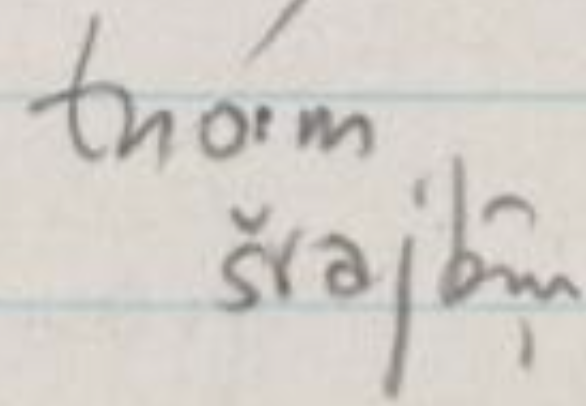 tno:m
šrajbm̩̑